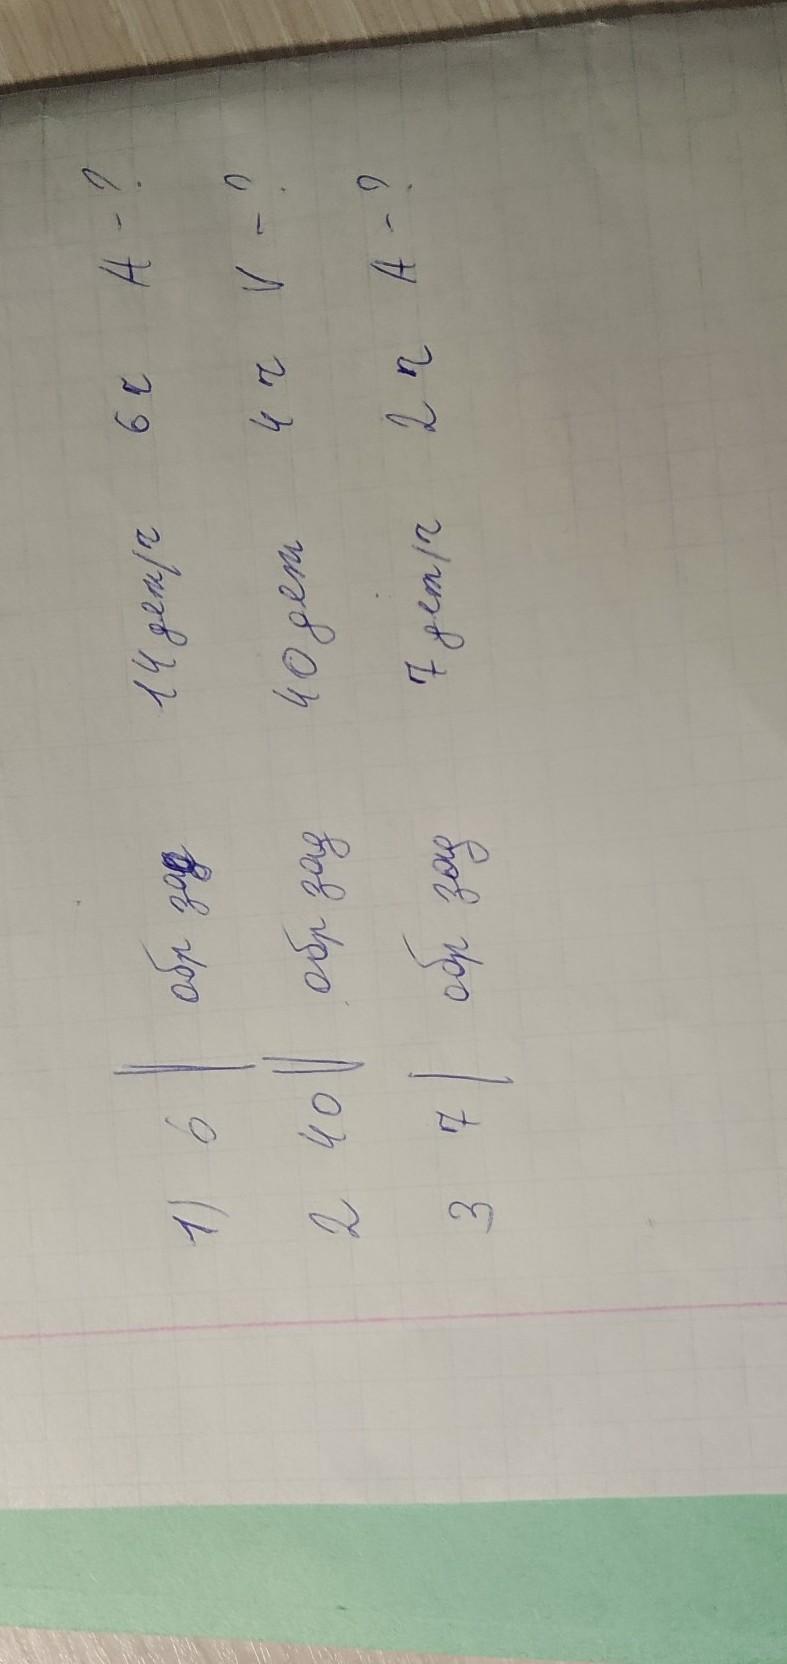 1) 6 | обр зад 14 дет/ч 6 ч А - ?
2 40 | обр зад 40 дет 4 ч V - ?
3 7 | обр зад 7 дет/ч 2 ч А - ?